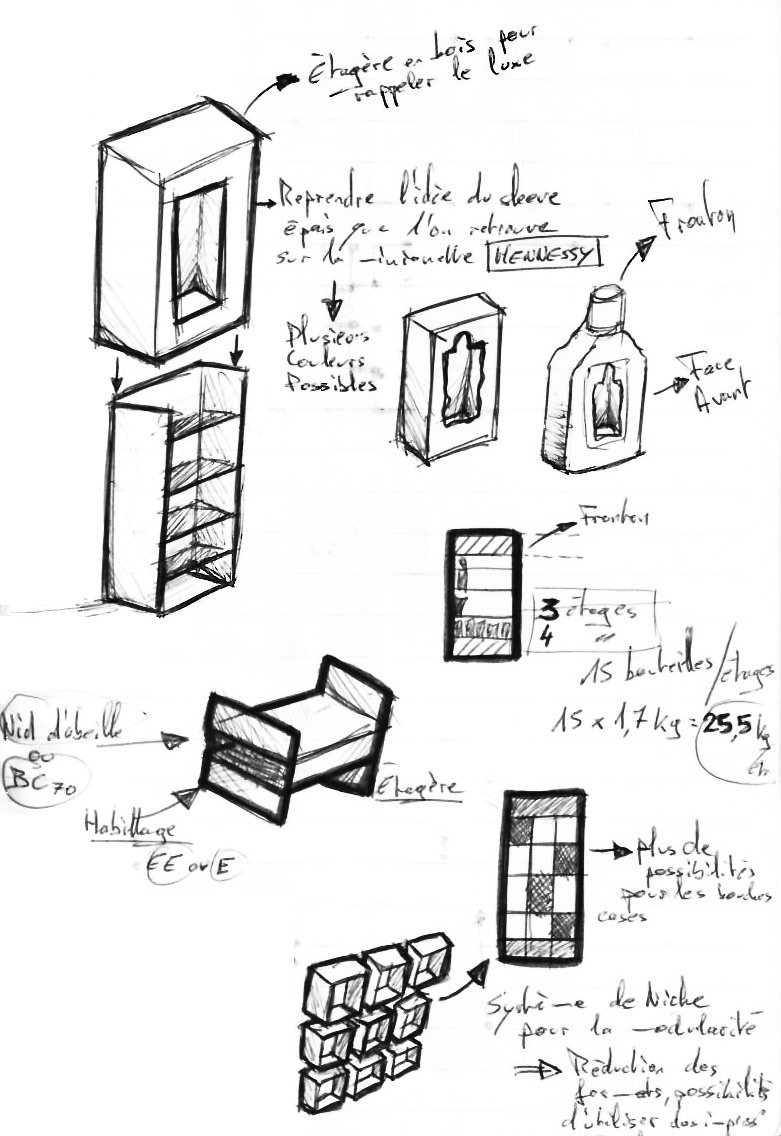 Étagère en bois pour
rappeler le luxe
Reprendre l'idée du sleeve
épais que l'on retrouve
sur la HENNESSY
Plusieurs
Couleurs
Possibles
Fronton
Face
Avant
Fronton
3 étages
4 "
15 bouteilles/étages
15 x 1,7 kg = 25,5 kg
Nid d'abeille
ou
BC70
Habillage
EE ou E
Étagère
plus de
possibilités
pour les
cases
Système de Niche
pour la modularité
⇒ Réduction des
formats, possibilité
d'utiliser